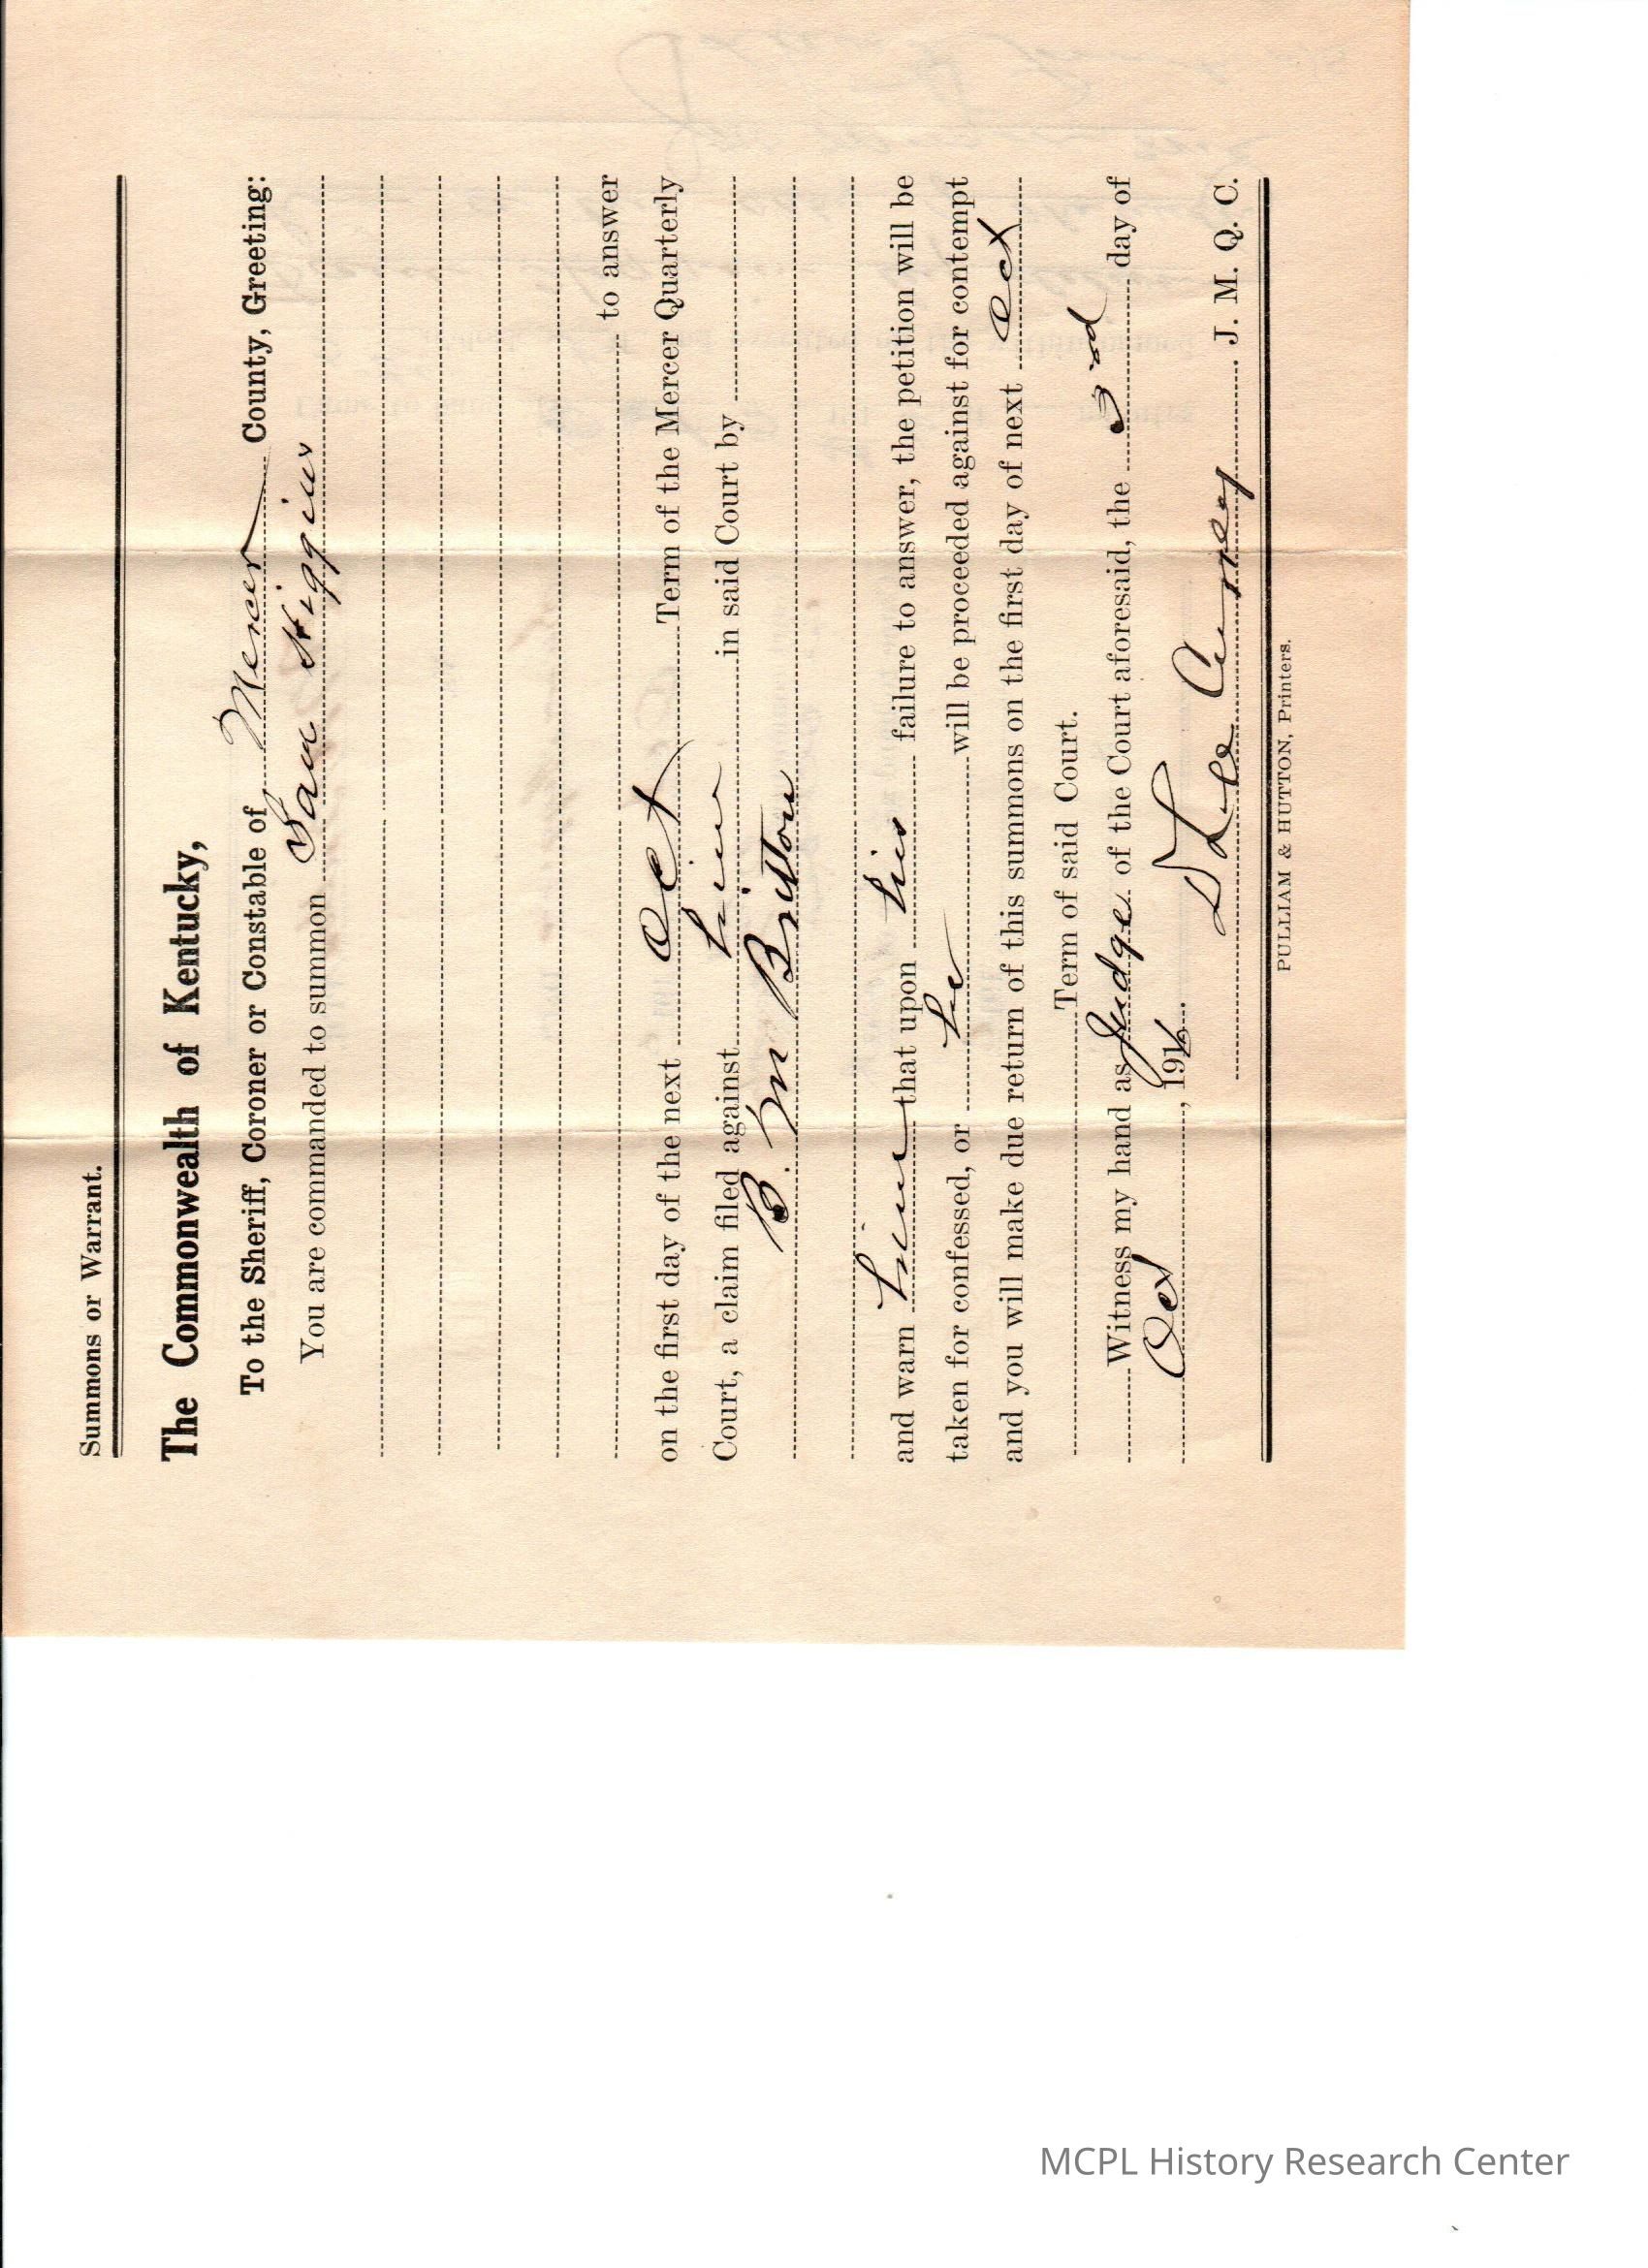 Summons or Warrant.
The Commonwealth of Kentucky,
To the Sheriff, Coroner or Constable of Mercer County, Greeting:
You are commanded to summon Sam Higgins
to answer
on the first day of the next Oct Term of the Mercer Quarterly
Court, a claim filed against him in said Court by
B. M Britton
and warn him that upon his failure to answer, the petition will be
taken for confessed, or he will be proceeded against for contempt
and you will make due return of this summons on the first day of next Oct
Term of said Court.
Witness my hand as Judge of the Court aforesaid, the 3rd day of
Oct, 1916.
D Lee Currey J. M. Q. C.
PULLIAM & HUTTON, Printers.
MCPL History Research Center